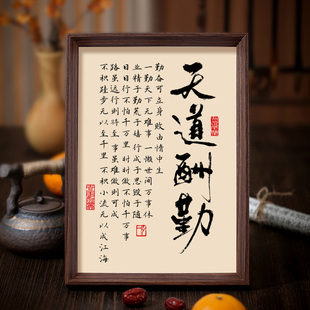 天道酬勤
勤奋可立身 败由惰中生
一勤天下无难事 一懒世间万事休
业精于勤荒于嬉 行成于思毁于随
日日行不怕千万里 时时做不怕千万事
路虽远行则将至 事虽难做则可成
不积跬步无以至千里 不积小流无以成江海